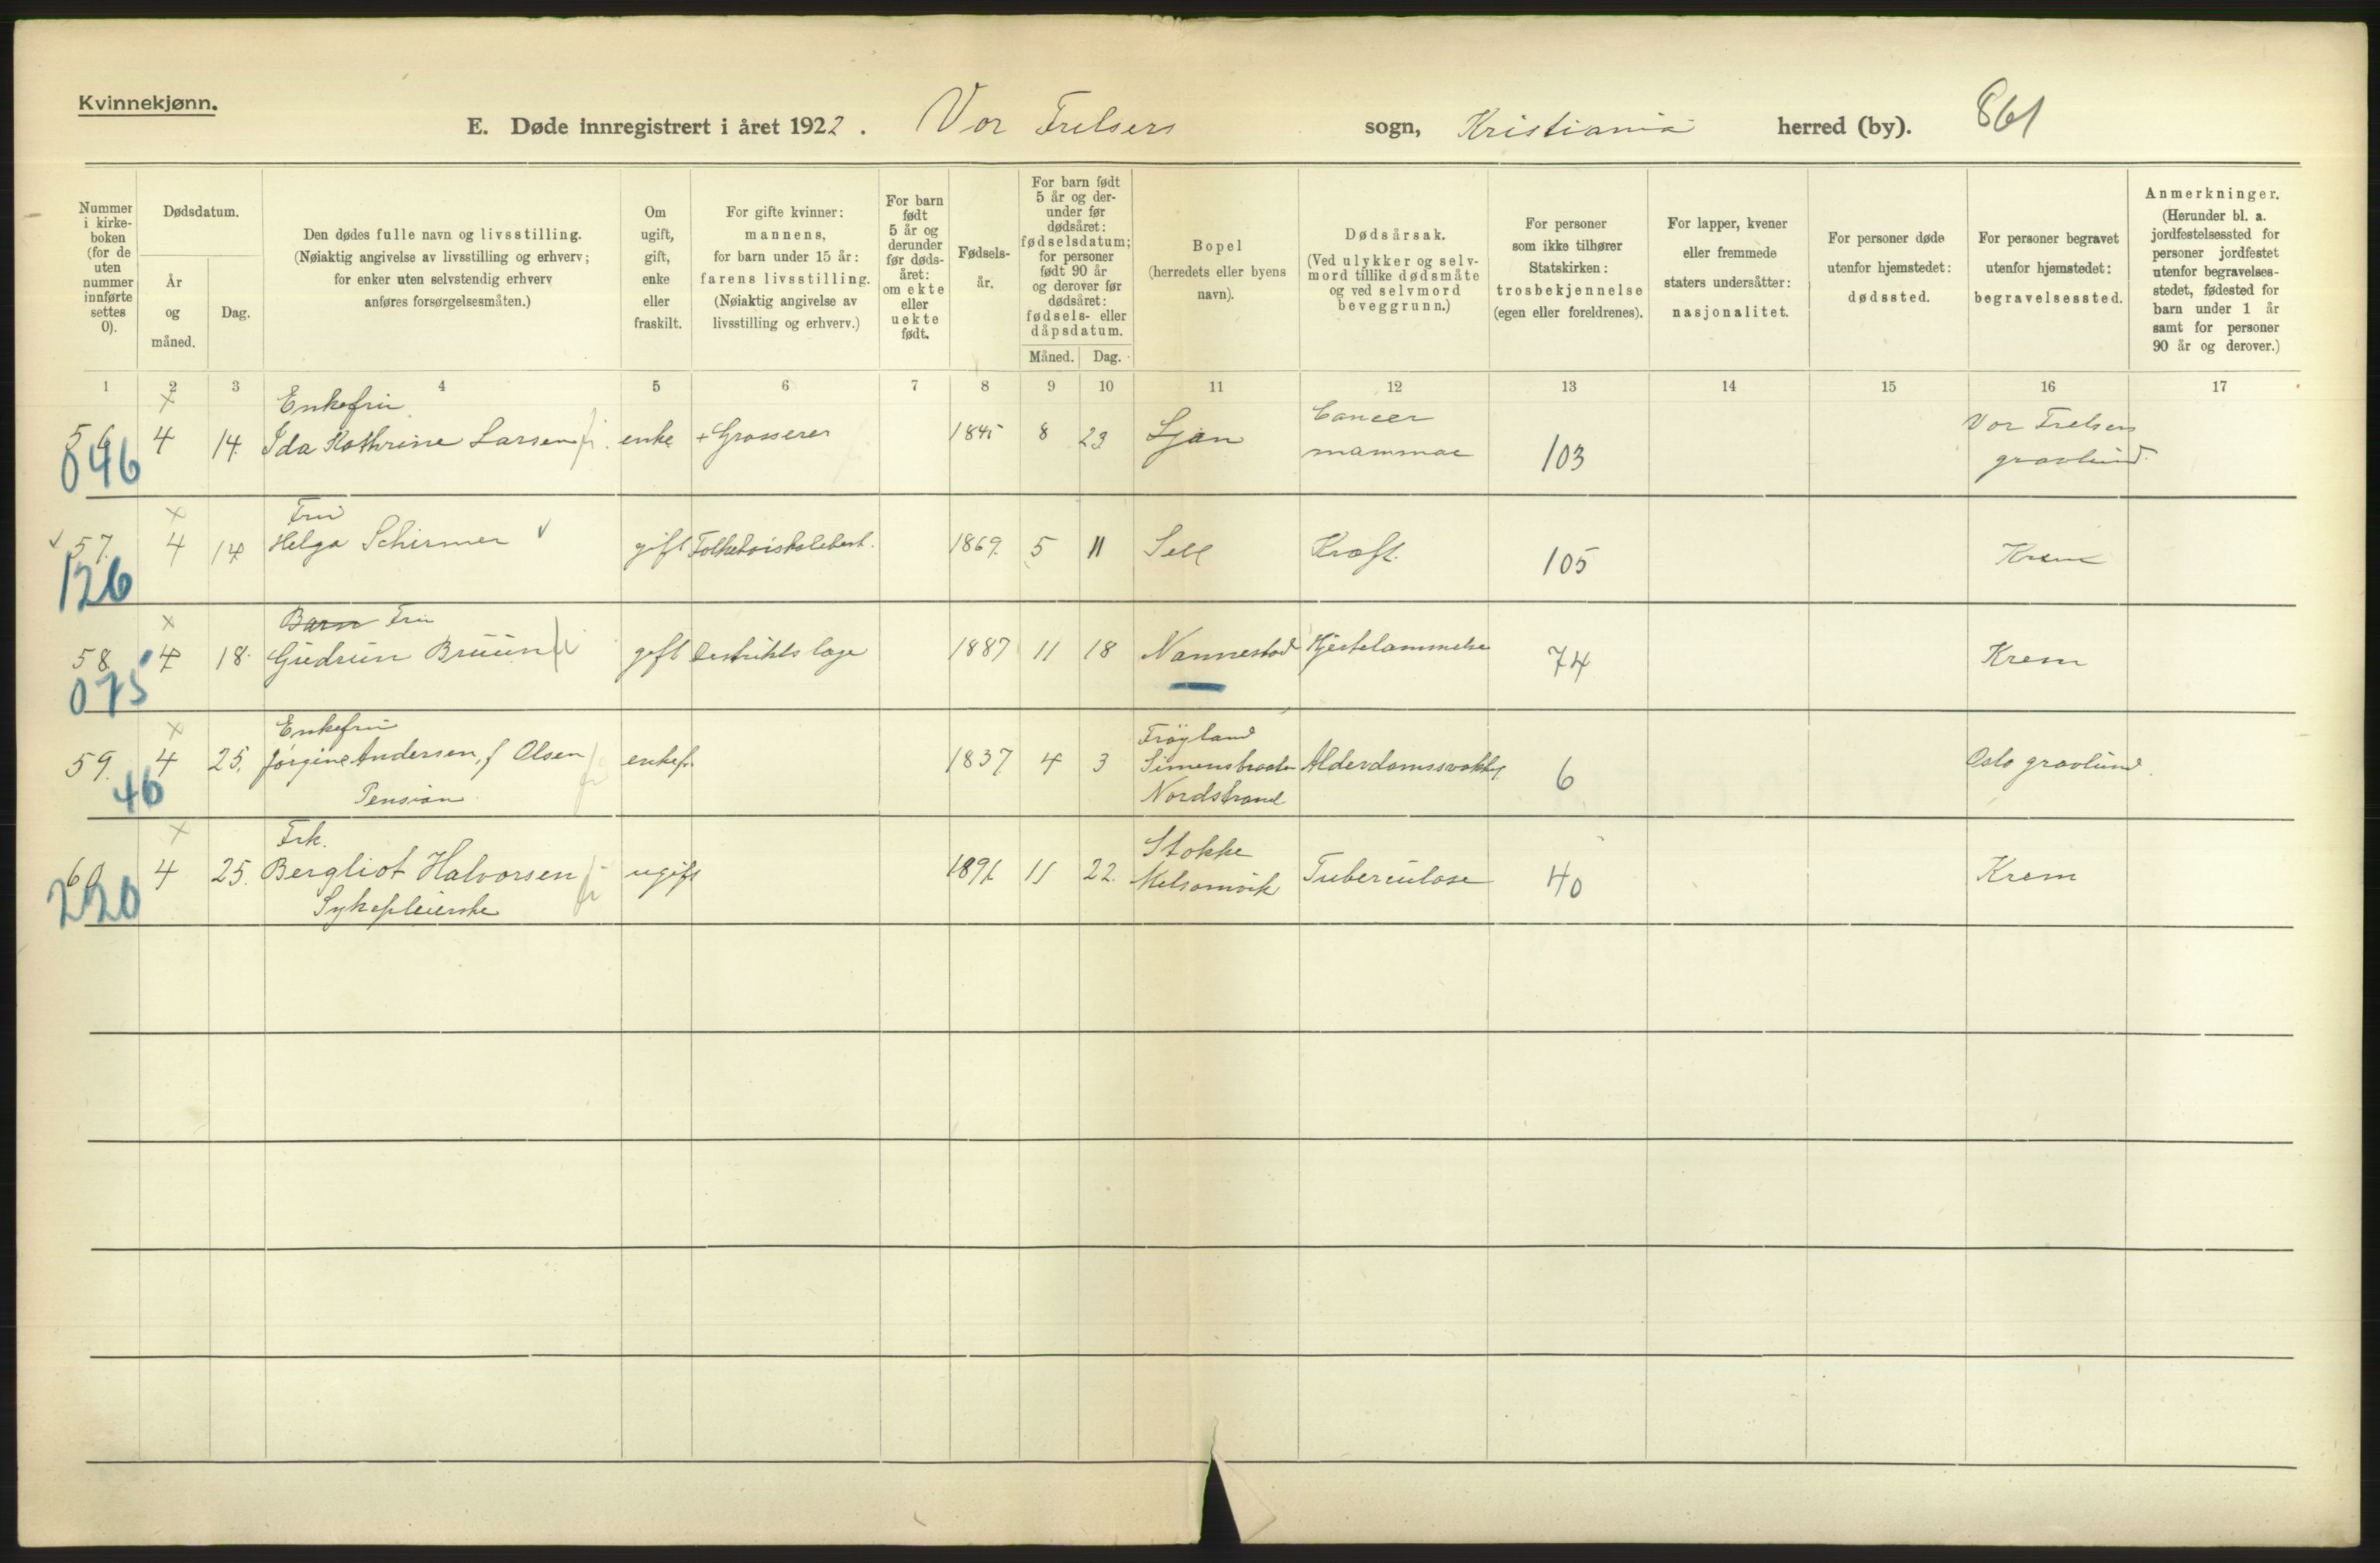 Kvinnekjønn.
E. Døde innregistrert i året 1922. Vor Frelsers sogn, Kristiania herred (by). 861
Nummer i kirkeboken (for de uten nummer innførte settes 0).
Dødsdatum.
År og måned.
Dag.
Den dødes fulle navn og livsstilling.
(Nøiaktig angivelse av livsstilling og erhverv; for enker uten selvstendig erhverv anføres forsørgelsesmåten.)
Om ugift, gift, enke eller fraskilt.
For gifte kvinner: mannens, for barn under 15 år: farens livsstilling.
(Nøiaktig angivelse av livsstilling og erhverv.)
For barn født 5 år og derunder før dødsåret: om ekte eller uekte født.
Fødselsår.
For barn født 5 år og derunder før dødsåret: fødselsdatum; for personer født 90 år og derover før dødsåret: fødsels- eller dåpsdatum.
Måned. Dag.
Bopel (herredets eller byens navn).
Dødsårsak.
(Ved ulykker og selvmord tillike dødsmåte og ved selvmord beveggrunn.)
For personer som ikke tilhører Statskirken: trosbekjennelse (egen eller foreldrenes).
For lapper, kvener eller fremmede staters undersåtter: nasjonalitet.
For personer døde utenfor hjemstedet: dødssted.
For personer begravet utenfor hjemstedet: begravelsessted.
Anmerkninger.
(Herunder bl. a. jordfestelsessted for personer jordfestet utenfor begravelsesstedet, fødested for barn under 1 år samt for personer 90 år og derover.)
1 2 3 4 5 6 7 8 9 10 11 12 13 14 15 16 17
x Enkefru Cancer Vor Frelsers
56 4 14. Ida Kathrine Larsen enke + Grosserer 1845 8 23 Ljan mammae 103 gravlund.
046
x Fru
57. 4 14 Helga Schirmer gift 1869. 5 11 Sell Kræft. 105 Krem
126
x Barn Fru
58. 4 18. Gudrun Bruun gift Distriktslæge 1887 11 18 Nannestad Hjertelammelse 74 Krem
075
x Enkefru Frøyland
59. 4 25. Jørgine Andersen, f Olsen enkefr. 1837 4 3 6 Oslo gravlund.
46 Pension Nordstrand
x Frk. Stokke
60 4 25. Bergliot Halvorsen ugift 1891. 11 22. Melsomvik Tuberculose 40 Krem
220 Sykepleierske